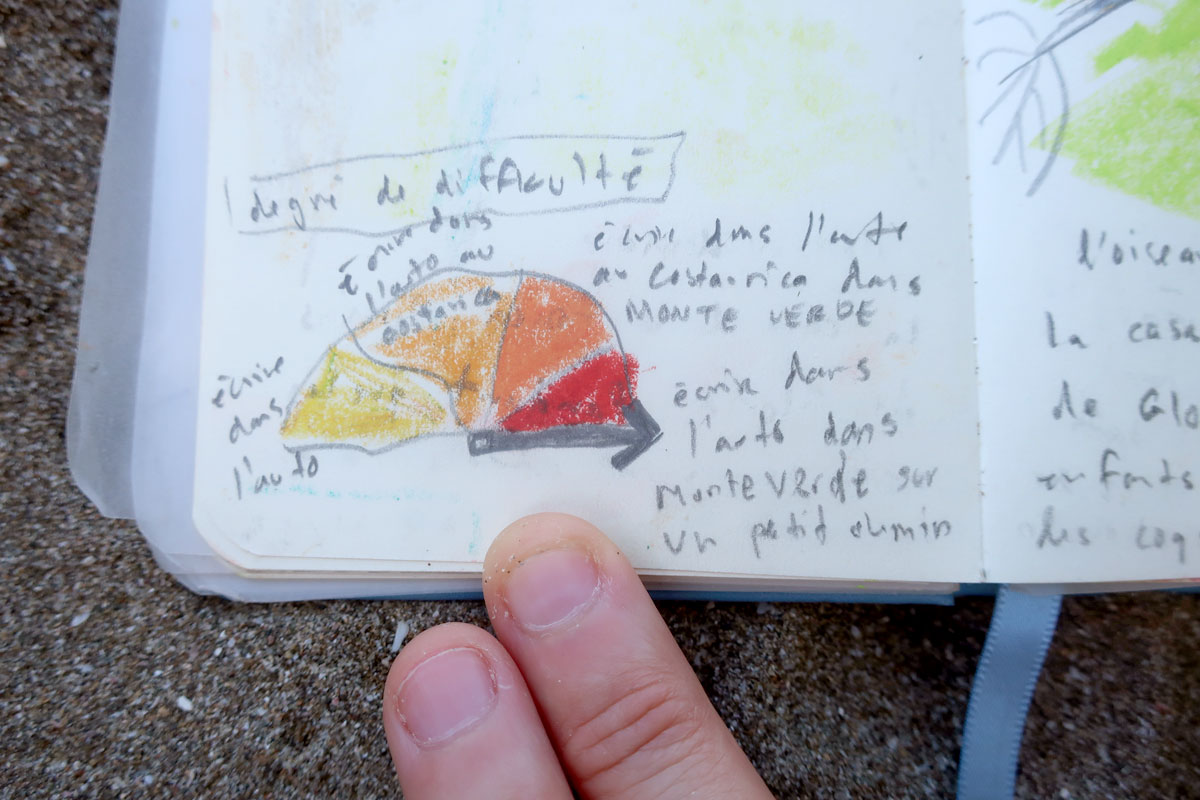 degré de difficulté
écrire
dans
l'auto
écrire dans
l'auto au
costa rica
écrire dans l'auto
au Costa rica dans
MONTE VERDE
écrire dans
l'auto dans
Monte Verde sur
un petit chemin
l'oiseau
la casa
de Glo
enfants
des coq